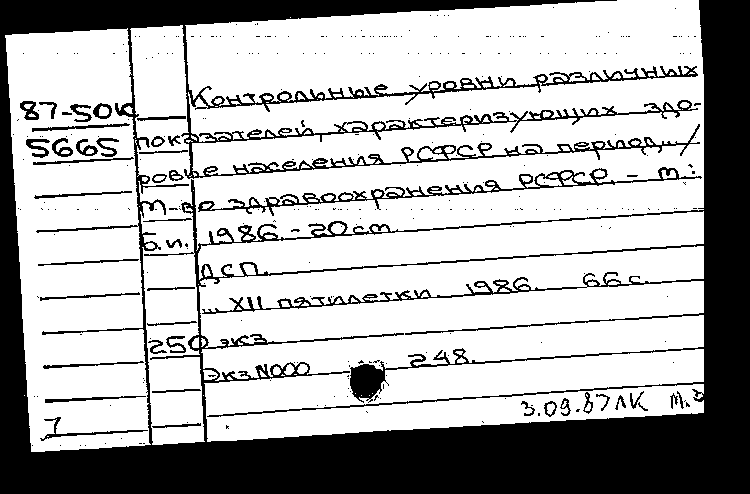 Контрольные уровни различных
87-50К
показателей, характеризующих здо-
5665
ровье населения РСФСР на период... /
М-во здравоохранения РСФСР. - М.:
Б.и., 1986. - 20 см
ДСП.
... XII пятилетки. 1986. 66 с.
250 экз.
Экз.N000 248.
3.09.87 ЛК
7